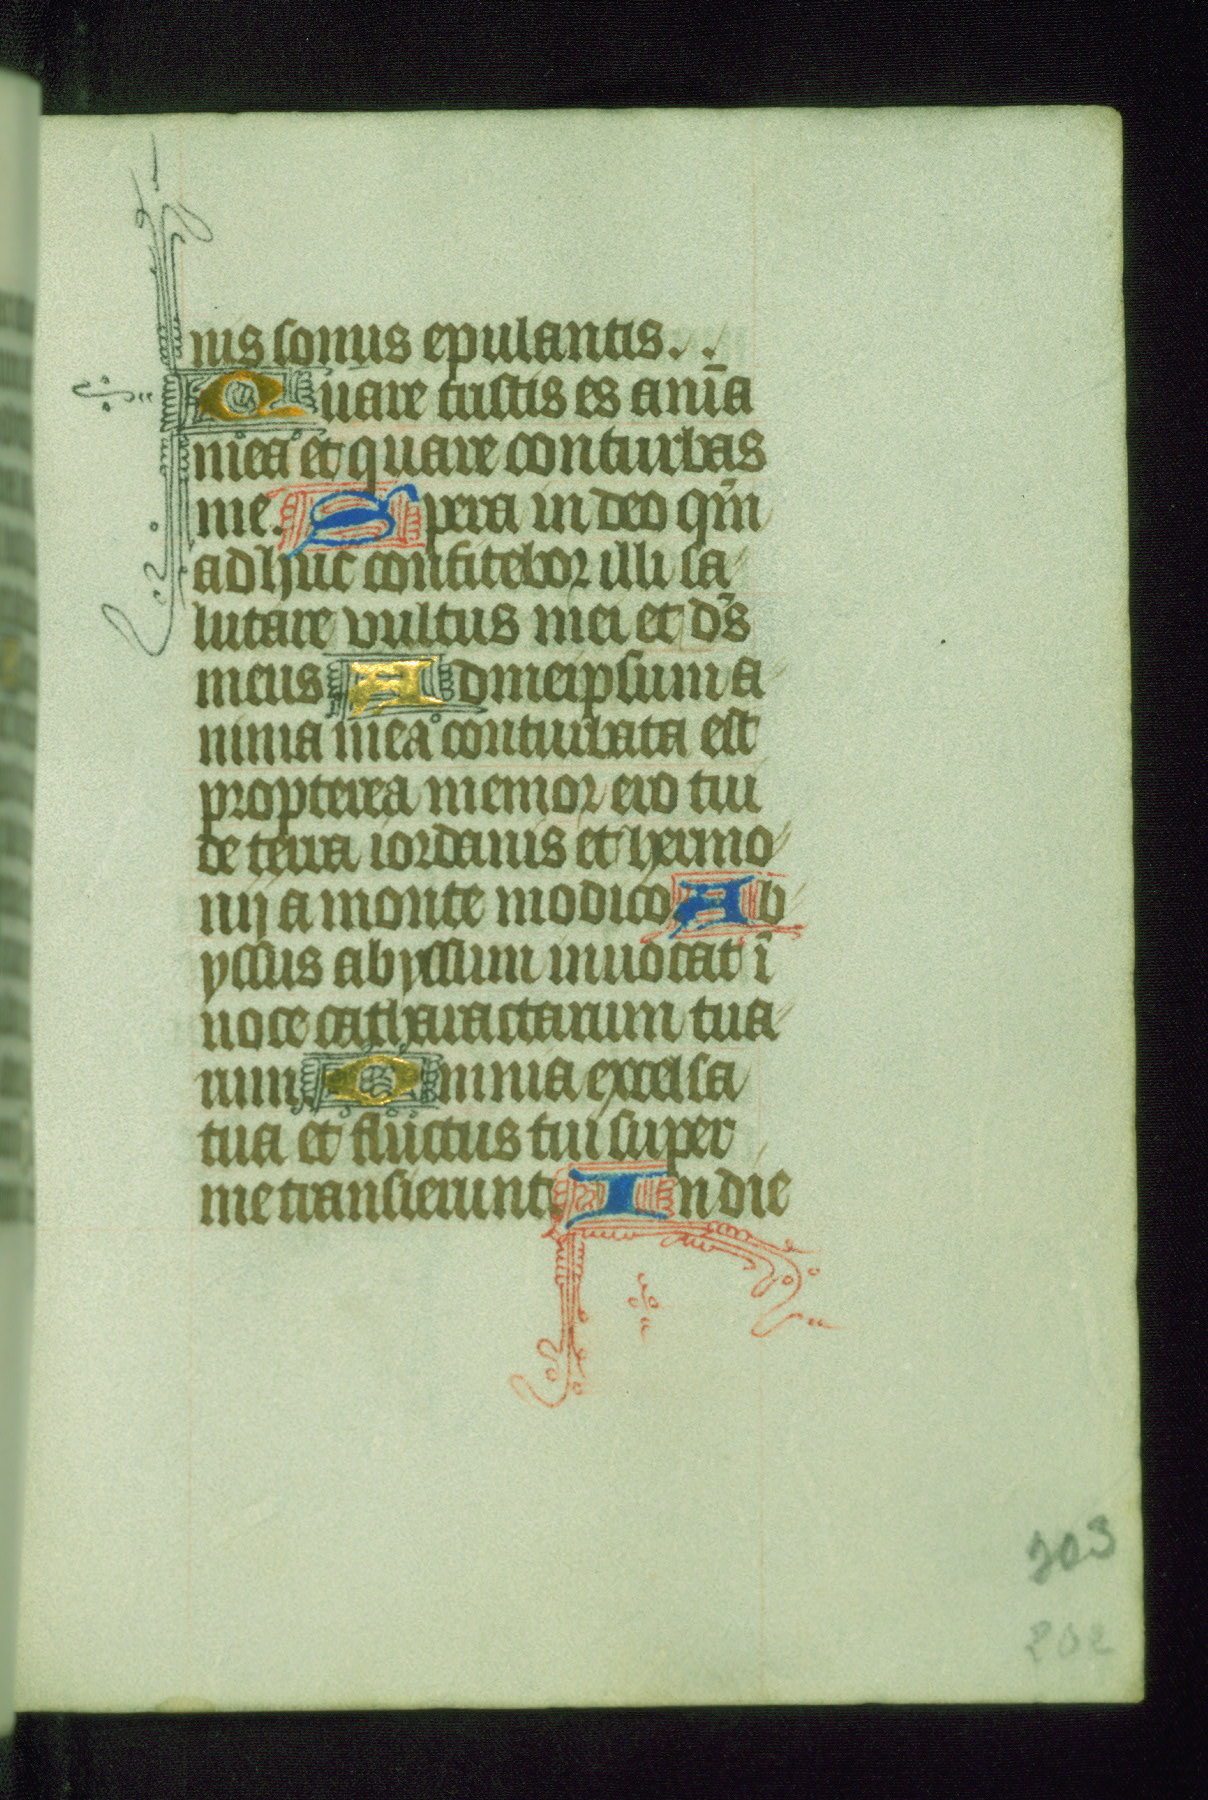 nis sonus epulantis. .
Quare tristis es anīa
mea et quare conturbas
me. Spera in deo qm̄
adhuc confitebor illi sa
lutare vultus mei et dс̄
meus Ad meipsum a
nima mea conturbata est
propterea memor ero tui
de terra iordanis et hermo
nij a monte modico Ab
yssus abyssum inuocat ī
uoce catharactarum tua
rum Omnia excelsa
tua et fluctus tui super
me transierunt In die
203
202